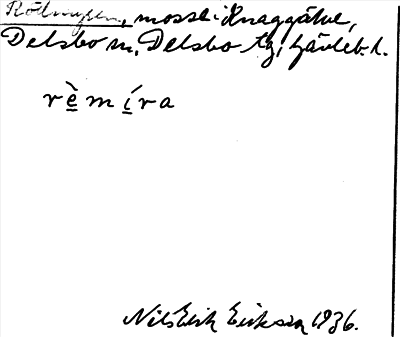 Rödmyren, mosse i Knaggälve,
Delsbo sn, Delsbo tg, Gävleb. l.
rè̲mí̲ra
Nils Erik Eriksson 1936.